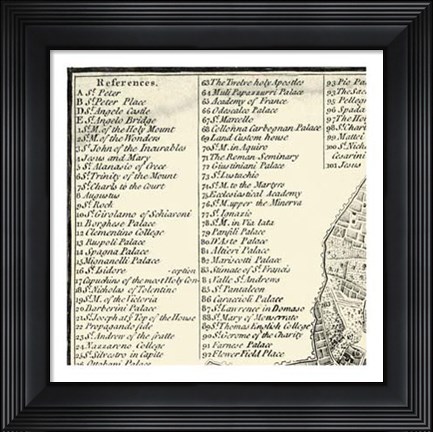 References.
A St. Peter
B St. Peter Place
D St. Angelo Castle
E St. Angelo Bridge
1 St. M. of the Holy Mount
2 St. M. of the Wonders
3 St. John of the Incurables
4 Jesus and Mary
5 St. Atanasio of Grece
6 St. Trinity of the Mount
7 St. Charls to the Court
8 Augustus
9 St. Rock
10 St. Girolamo of Schiavoni
11 Borghese Palace
12 Clementino College
13 Ruspoli Palace
14 Spagna Palace
15 Mignanelli Palace
16 St. Isidore -ception
17 Capuchins of the most Holy Con-
18 St. Nicholas of Tolentino
19 St. M. of the Victoria
20 Barberini Palace
21 St. Joseph at ye Top of the House
22 Propaganda fide
23 St. Andrew of the fratte
24 Nazzareno College
25 St. Silvestro in Capite
26 Ottobani Palace
63 The Twelve holy Apostles
64 Muti Papazzurri Palace
65 Academy of France
66 Odescalco Palace
67 St. Marcello
68 Collohna Carbognan Palace
69 Land Custom house
70 St. M. in Aquiro
71 The Roman Seminary
72 Giustiniani Palace
73 St. Eustachio
74 St. M. to the Martyrs
75 Ecclesiastical Academy
76 St. M. upper the Minerva
77 St. Ignazio
78 St. M. in Via Lata
79 Panfili Palace
80 D'Aste Palace
81 Altieri Palace
82 Mariscotti Palace
83 Stimate of St. Francis
84 Valle St. Andrews
85 St. Pantaleon
86 Caraccioli Palace
87 St. Lawrence in Damaso
88 St. Mary of Monserrato
89 St. Thomas English College
90 St. Gerome of the Charity
91 Farnese Palace
92 Flower Field Place
93 Pio Pa
94 The Sac
95 Pelleg
96 Spada
97 The Ho
98 St. Char
99 Mattei
100 St. Nich
Cesarini
101 Jesus